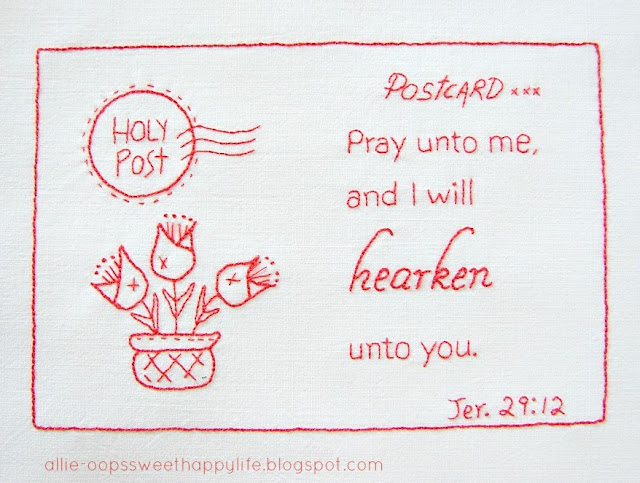 HOLY
POST
POSTCARD xxx
Pray unto me,
and I will
hearken
unto you.
Jer. 29:12
allie-oopssweethappylife.blogspot.com